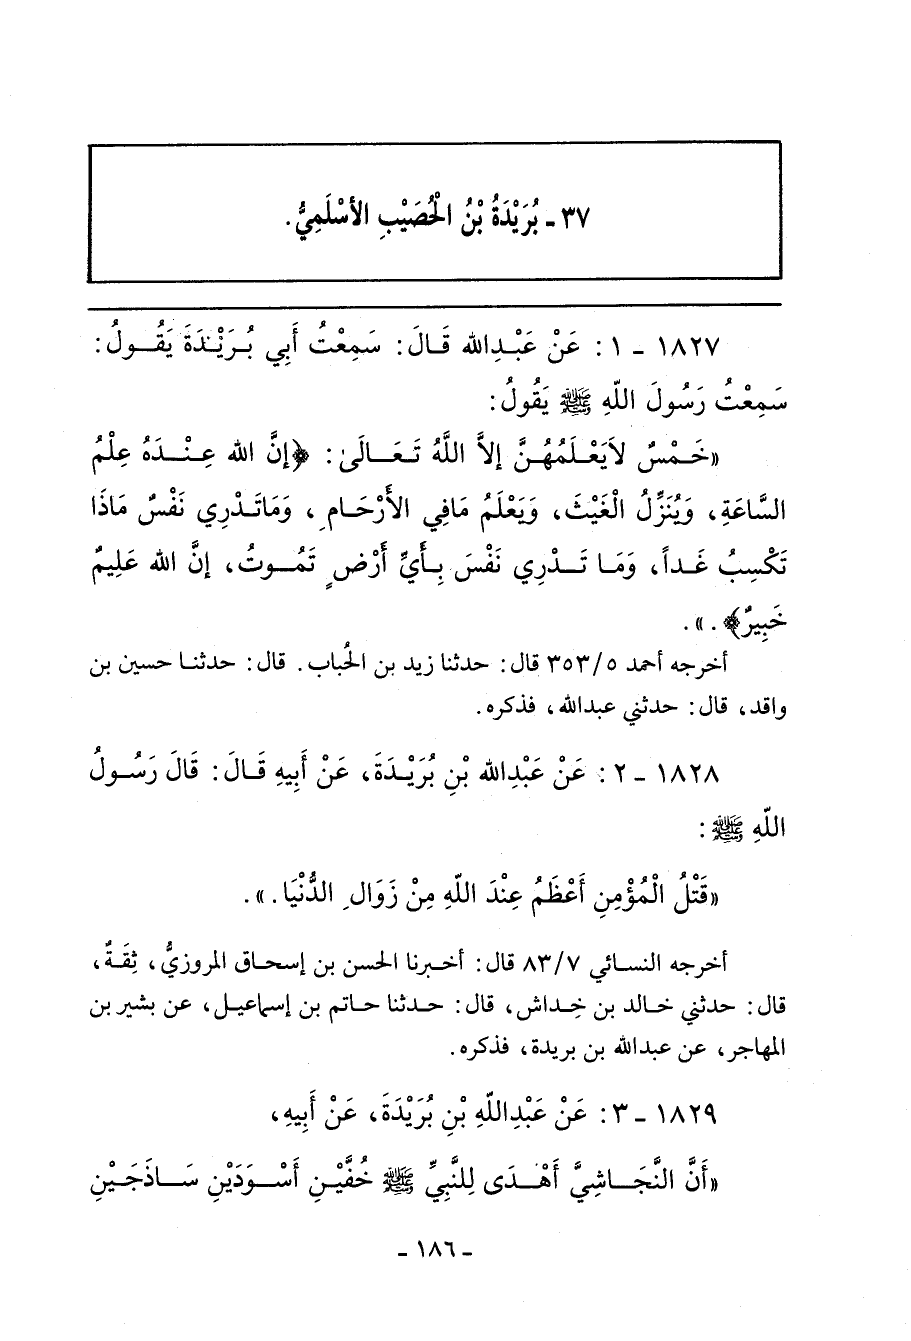 ٣٧ ـ بُرَيْدَةُ بْنُ الْحُصَيْبِ الأسْلَمِيُّ.
١٨٢٧ ـ ١ : عَنْ عَبْدِالله قَالَ: سَمِعْتُ أَبِي بُرَيْدَةَ يَقُولُ:
سَمِعْتُ رَسُولَ اللّهِ ﷺ يَقُولُ:
«خَمْسٌ لاَيَعْلَمُهُنَّ إلاَّ اللَّهُ تَعَالَىٰ: ﴿إنَّ الله عِنْدَهُ عِلْمُ
السَّاعَةِ، وَيُنَزِّلُ الْغَيْثَ، وَيَعْلَمُ مَافِي الأَرْحَامِ، وَمَاتَدْرِي نَفْسٌ مَاذَا
تَكْسِبُ غَداً، وَمَا تَدْرِي نَفْسَ بِأَيِّ أَرْضٍ تَمُوتُ، إنَّ الله عَلِيمٌ
خَبِيرٌ﴾.».
أخرجه أحمد ٣٥٣/٥ قال: حدثنا زيد بن الحُباب. قال: حدثنا حسين بن
واقد، قال: حدثني عبدالله، فذكره.
١٨٢٨ ـ ٢ : عَنْ عَبْدِالله بْنِ بُرَيْدَةَ، عَنْ أَبِيهِ قَالَ: قَالَ رَسُولُ
اللّهِ ﷺ:
«قَتْلُ الْمُؤْمِنِ أَعْظَمُ عِنْدَ اللّهِ مِنْ زَوَالِ الدُّنْيَا.».
أخرجه النسائي ٨٣/٧ قال: أخبرنا الحسن بن إسحاق المروزيُّ، ثِقَةٌ،
قال: حدثني خالد بن خِداش، قال: حدثنا حاتم بن إسماعيل، عن بشير بن
المهاجر، عن عبدالله بن بريدة، فذكره.
١٨٢٩ ـ ٣ : عَنْ عَبْدِاللّهِ بْنِ بُرَيْدَةَ، عَنْ أَبِيهِ،
«أَنَّ النَّجَاشِيَّ أَهْدَى لِلنَّبِيِّ ﷺ خُفَّيْنِ أَسْوَدَيْنِ سَاذَجَيْنِ
ـ ١٨٦ ـ